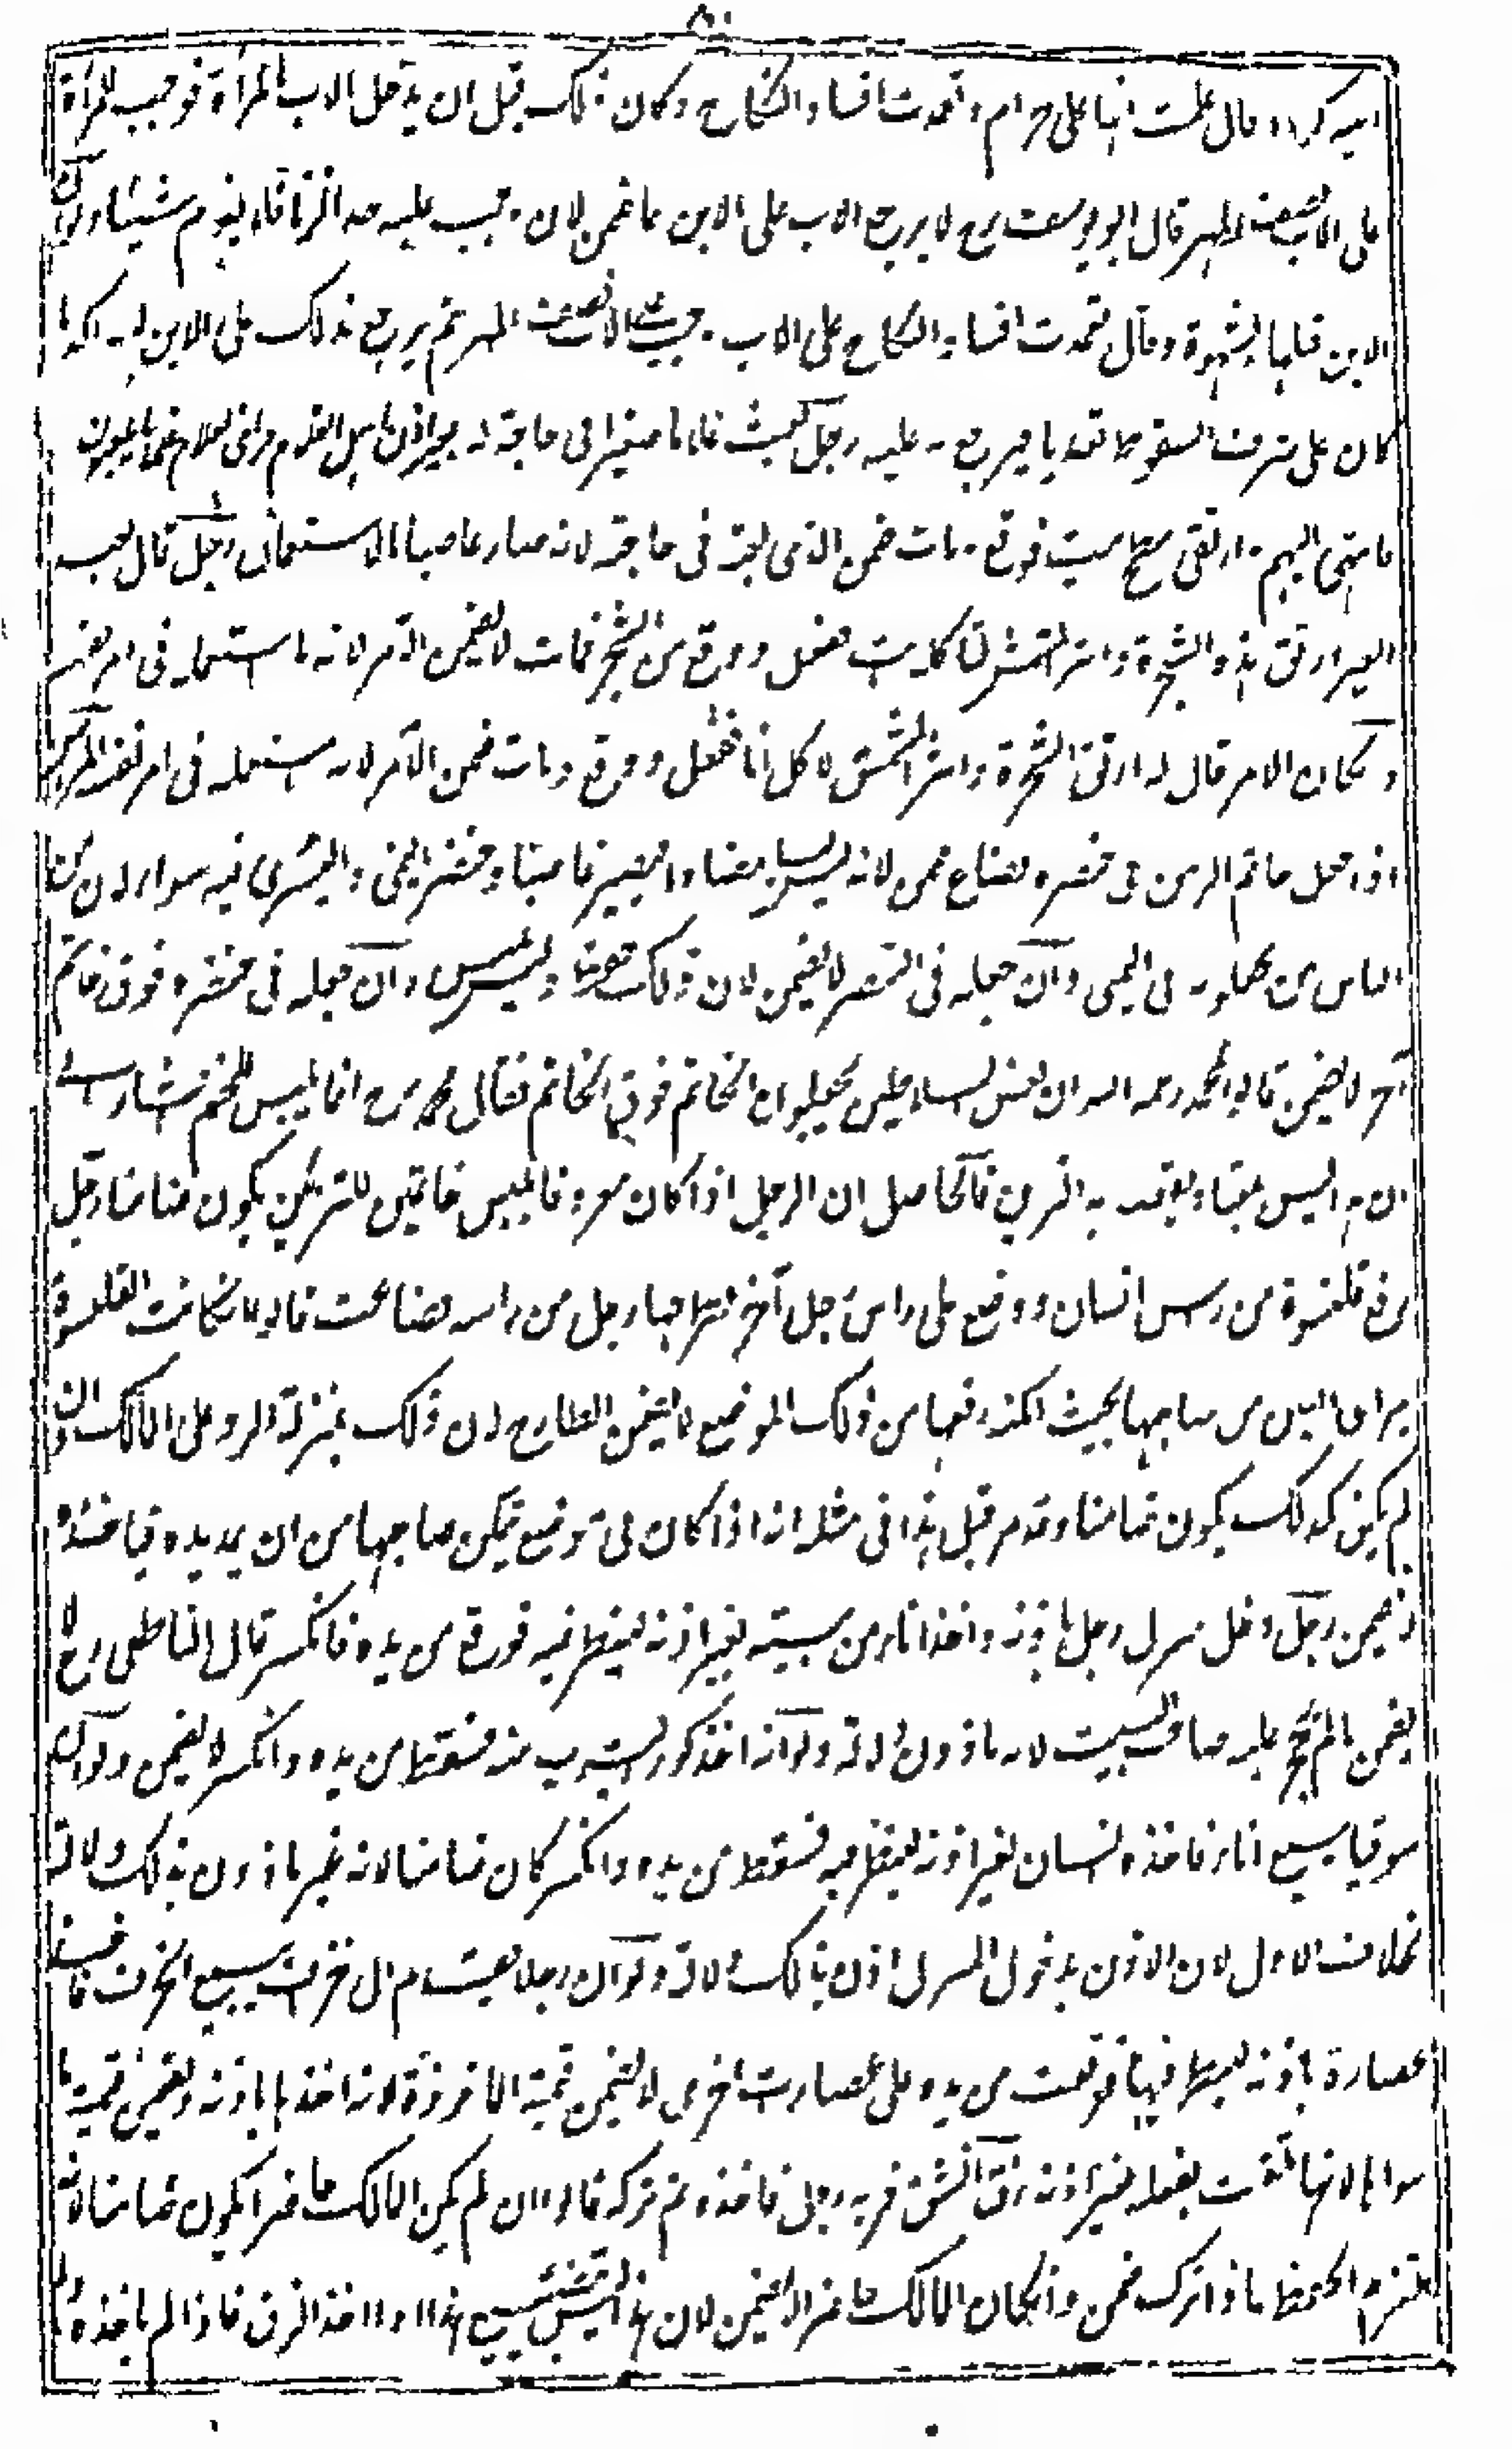 ابيه كرها و قال علمت انها على حرام و تعمدت افساد النكاح و كان ذلك قبل ان يدخل الاب بالمرأة فوجب للمرأة
على الاب نصف المهر قال ابو يوسف رح لا يرجع الاب على الابن بما غرم لان وجب عليه حد الزنا فلا يلزم شيئا ولو ان
الابن قبلها بشهوة وقال تعمدت افساد النكاح على الاب وجب على الاب نصف المهر ثم يرجع بذلك على الابن لانه اكد ما
كان على شرف السقوط تعديا فيرجع به عليه رجل بعث غلاما صغيرا فى حاجة له بغير اذن اهل الغلام فرأى الغلام غلمانا يلعبون
فانتهى اليهم وارتقى سطح بيت فوقع ومات ضمن الذى بعثه فى حاجته لانه صار غاصبا بالاستعمال رجل قال لعبد
الغير ارتق هذه الشجرة وانثر المشمش لتأكله انت ففعل و وقع من الشجرة فمات لا يضمن الآمر لانه ما استعمله فى امر نفسه
و لو كان الامر قال له ارتق الشجرة وانثر المشمش لآكل انا ففعل و وقع ومات ضمن الآمر لانه استعمله فى امر نفسه المرتهن
اذا جعل خاتم الرهن فى خنصره فضاع ضمن لانه لبس لبسا معتادا فيصير غاصبا وخنصر اليمنى واليسرى فيه سواء لان من
الناس من يجعلونه فى اليمنى وان جعله فى البنصر لا يضمن لان ذلك حفظ و ليس بلبس وان جعله فى خنصره فوق خاتم
آخر لا يضمن قالوا لمحمد رحمه الله ان بعض السلاطين يجعلون الخاتم فوق الخاتم فقال محمد رح انما يلبس للختم اشار الى
ان هذا ليس بلبس يقصد به التزين فالحاصل ان الرجل اذا كان معروفا بلبس خاتمين للتزين يكون ضامنا رجل
رفع قلنسوة من رأس انسان ووضع على رأس رجل آخر فطرحها رجل من رأسه فضاعت قالوا ان كانت القلنسوة
بمرأى العين من صاحبها بحيث امكنه رفعها من ذلك الموضع لا يضمن الطارح لان ذلك بمنزلة الرد على المالك وان
لم يكن كذلك يكون ضامنا وقد مر قبل هذا فى مثله انه اذا كان فى موضع يمكن صاحبها من ان يمد يده فيأخذه
لا يضمن رجل دخل منزل رجل باذنه واخذ اناء من بيته بغير اذنه لينظر فيه فوقع من يده فانكسر قال الناطفى رح لا
يضمن ما لم يحجر عليه صاحب البيت لانه ماذون دلالة ولو انه اخذ كوزا ليشرب منه فسقط من يده وانكسر لا يضمن ولو ان
سوقيا يبيع اناء فاخذه انسان بغير اذنه لينظر فيه فسقط من يده وانكسر كان ضامنا لانه غير ماذون بذلك دلالة
بخلاف الاول لان الاذن بدخول المنزل اذن بذلك دلالة ولو ان رجلا تقدم الى خزاف يبيع الخزف فاخذ
غضارة باذنه لينظر فيها فوقعت من يده على غضارات اخرى لا يضمن قيمة الماخوذة لانه اخذها باذنه ويضمن قيمة ما
سواها لانها تلفت بفعله بغير اذنه زق انشق فمر به رجل فاخذه ثم تركه قالوا ان لم يكن المالك حاضرا يكون ضامنا لانه
ملتزم الحفظ فاذا ترك ضمن وان كان المالك حاضرا لا يضمن لان هذا ليس بتضييع هذا اذا اخذ الزق فاذا لم ياخذه ولم